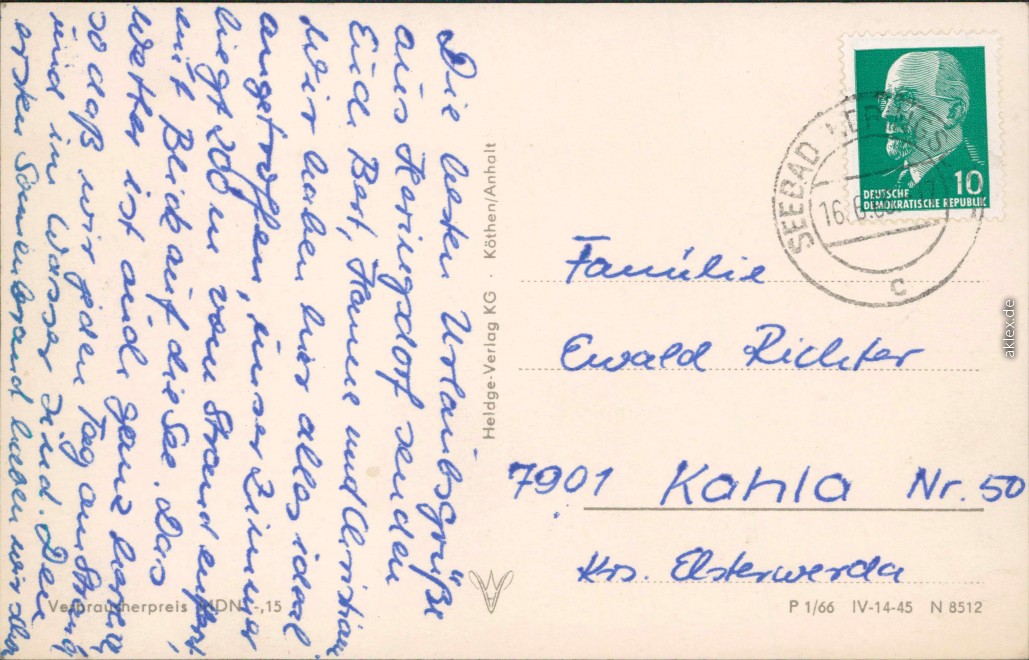 Die besten Urlaubsgrüße
aus Heringsdorf senden
Euch Bert, Hanne und Christian
Wir haben hier alles ideal
angetroffen, unser Zimmer
liegt 200 m vom Strand entfernt
mit Blick auf die See. Das
Wetter ist auch ganz
so daß wir jeden Tag am Strand
und im Wasser sind. Den
ersten Sonnenbrand haben wir schon
Heldge-Verlag KG · Köthen/Anhalt
DEUTSCHE
DEMOKRATISCHE REPUBLIK
10
SEEBAD
16.6.
c
Familie
Ewald Richter
7901 Kahla Nr. 50
Krs. Elsterwerda
Verbraucherpreis MDN -,15
P 1/66 IV-14-45 N 8512
aklex.de